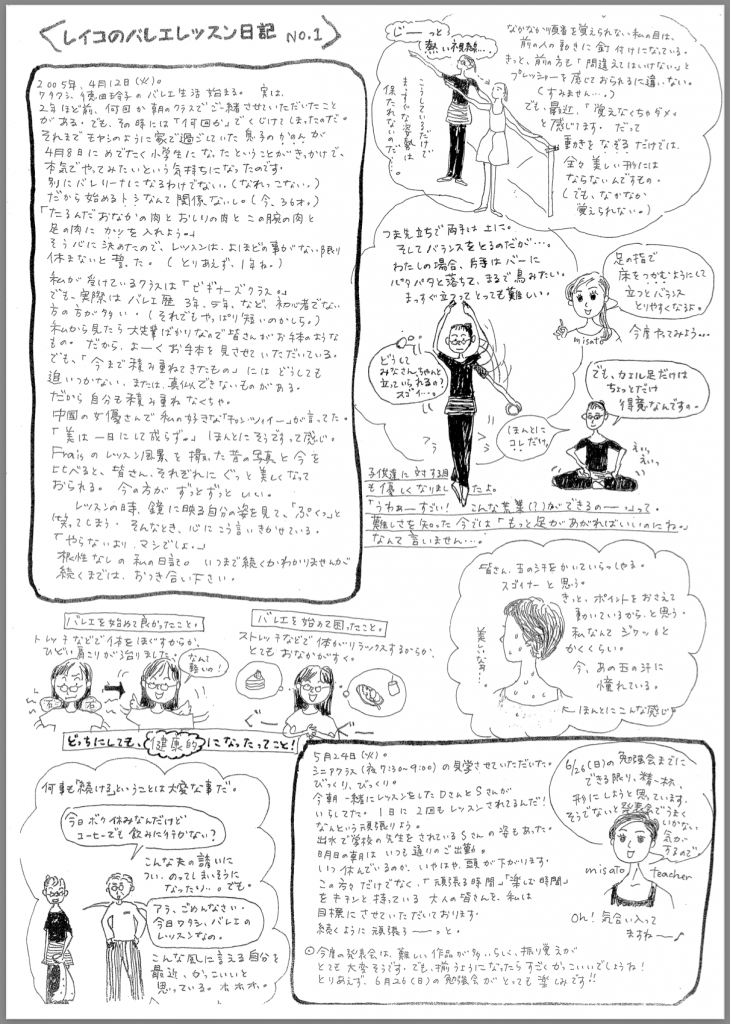 レイコのバレエレッスン日記 NO.1
2005年、4月12日(火)。
ワタクシ、徳田玲子のバレエ生活 始まる。 実は、
2年ほど前、何回か朝のクラスでご一緒させていただいたこと
がある。でも、その時には「何回か」でくじけてしまったのだ。
それまでモヤシのように家で過ごしていた 息子の
4月8日にめでたく小学生になったということがきっかけで、
本気でやってみたいという気持ちになったのです。
別にバレリーナになるわけでない。(なれっこない。)
だから始めるトシなんて関係ないし。(今、36才。)
「たるんだおなかの肉とおしりの肉とこの腕の肉と
足の肉にカツを入れよう。」
そう心に決めたので、レッスンは、よほどの事がない限り
休まないと誓った。 (とりあえず、1年ね。)
私が受けているクラスは「ビギナーズクラス。」
でも、実際はバレエ歴 3年、5年、など、初心者でない
方の方が多い。(それでもやっぱり短いのかしら。)
私から見たら大先輩ばかりなので皆さんがお手本のような
もの。だから、よーくお手本を見させていただいている。
でも、「今まで積み重ねてきたもの」には どうしても
追いつかない、または、真似できないものがある。
だから自分も積み重ねなくちゃ。
中国の女優さんで私の好きな「チャン・ツィイー」が言ってた。
「美は一日にして成らず。」 ほんとにそうですって感じ。
Fraisのレッスン風景を撮った昔の写真と今を
比べると、皆さん、それぞれにぐっと美しくなって
おられる。 今の方がずっとずっといい。
レッスンの時、鏡に映る自分の姿を見て、「ぷくっ」と
笑ってしまう。そんなとき、心にこう言いきかせている。
「やらないより、マシでしょ。」
根性なしの私の日記。いつまで続くかわかりませんが
続くまでは、おつき合い下さい。
じーっと
熱い視線…
こうしているだけで
まっすぐな姿勢は
保たれないのだ…。
なかなか順番を覚えられない私の目は、
前の人の動きに釘付けになっている。
きっと、前の方も「間違えてはいけない」と
プレッシャーを感じておられるに違いない。
(すみません…。)
でも、最近、「覚えなくちゃダメ」
と感じます。 だって
動きをなぞるだけでは、
全々 美しい形には
ならないんですもの。
(でも、なかなか
覚えられない。)
つま先立ちで両手は上に。
そしてバランスをとるのだが…。
わたしの場合、片手はバーに
パタパタと落ちて、まるで鳥みたい。
まっすぐ立つってとっても難しい。
どうして
みなさん、ちゃんと
立っていられるの?
スゴイ…。
足の指で
床をつかむようにして
立つとバランス
とりやすくなるよ。
misato
今度やってみよう…
でも、カエル足だけは
ちょっとだけ
得意なんですの。
ほんとに
コレだけ。
子供達に対する目
も優しくなりましたよ。
「うわぁーすごい! こんな芸業(?)ができるのー…」って。
難しさを知った今では「もっと足があがればいいのにね。」
なんて言いません…。
皆さん、玉の汗をかいていらっしゃる。
スゴイナーと思う。
きっと、ポイントをおさえて
動いているから、と思う。
私なんて ジワッと
かくくらい。
今、あの玉の汗に
憧れている。
美しいなあ…
←ほんとにこんな感じ
バレエを始めて良かったこと。
ストレッチなどで体をほぐすからか、
ひどい肩こりが治りました。
石
石
なんて
軽いの!
バレエを始めて困ったこと。
ストレッチなどで体がリラックスするからか、
とてもおなかがすく。
どっちにしても、健康的になったってこと!
何事も「続ける」ということは大変な事だ。
今日 ボク休みなんだけど
コーヒーでも飲みに行かない?
こんな夫の誘いに
つい、のってしまいそうに
なったり…。でも。
アラ、ごめんなさい。
今日ワタシ、バレエの
レッスンなの。
こんな風に言える自分を
最近、かっこいいと
思っている。ホホホ。
5月24日(火)。
シニアクラス(夜7:30〜9:00)の見学させていただいた。
びっくり、びっくり。
今朝一緒にレッスンをしたDさんとSさんが
いらしてた。 1日に2回もレッスンされてるんだ!
なんという頑張りよう。
出水で学校の先生をされているSさんの姿もあった。
明日の朝はいつも通りのご出勤。
いつ休んでいるのか、いやはや、頭が下がります。
この方々だけでなく、「頑張る時間」「楽しむ時間」
をキチンと持っている大人の皆さんを、私は
目標にさせていただいております。
続くように頑張ろーっと。
◎今度の発表会は、難しい作品が多いらしく、振り覚えが
とても大変そうです。でも、揃うようになったらすごくかっこいいでしょうね!
とりあえず、6月26(日)の勉強会がとっても楽しみです!!
6/26(日)の勉強会までに
できる限り、精一杯、
形にしようと思っています。
そうでないと発表会でうまく
いかない
気が
するので
misato teacher
Oh! 気合い入って
ますねー♪